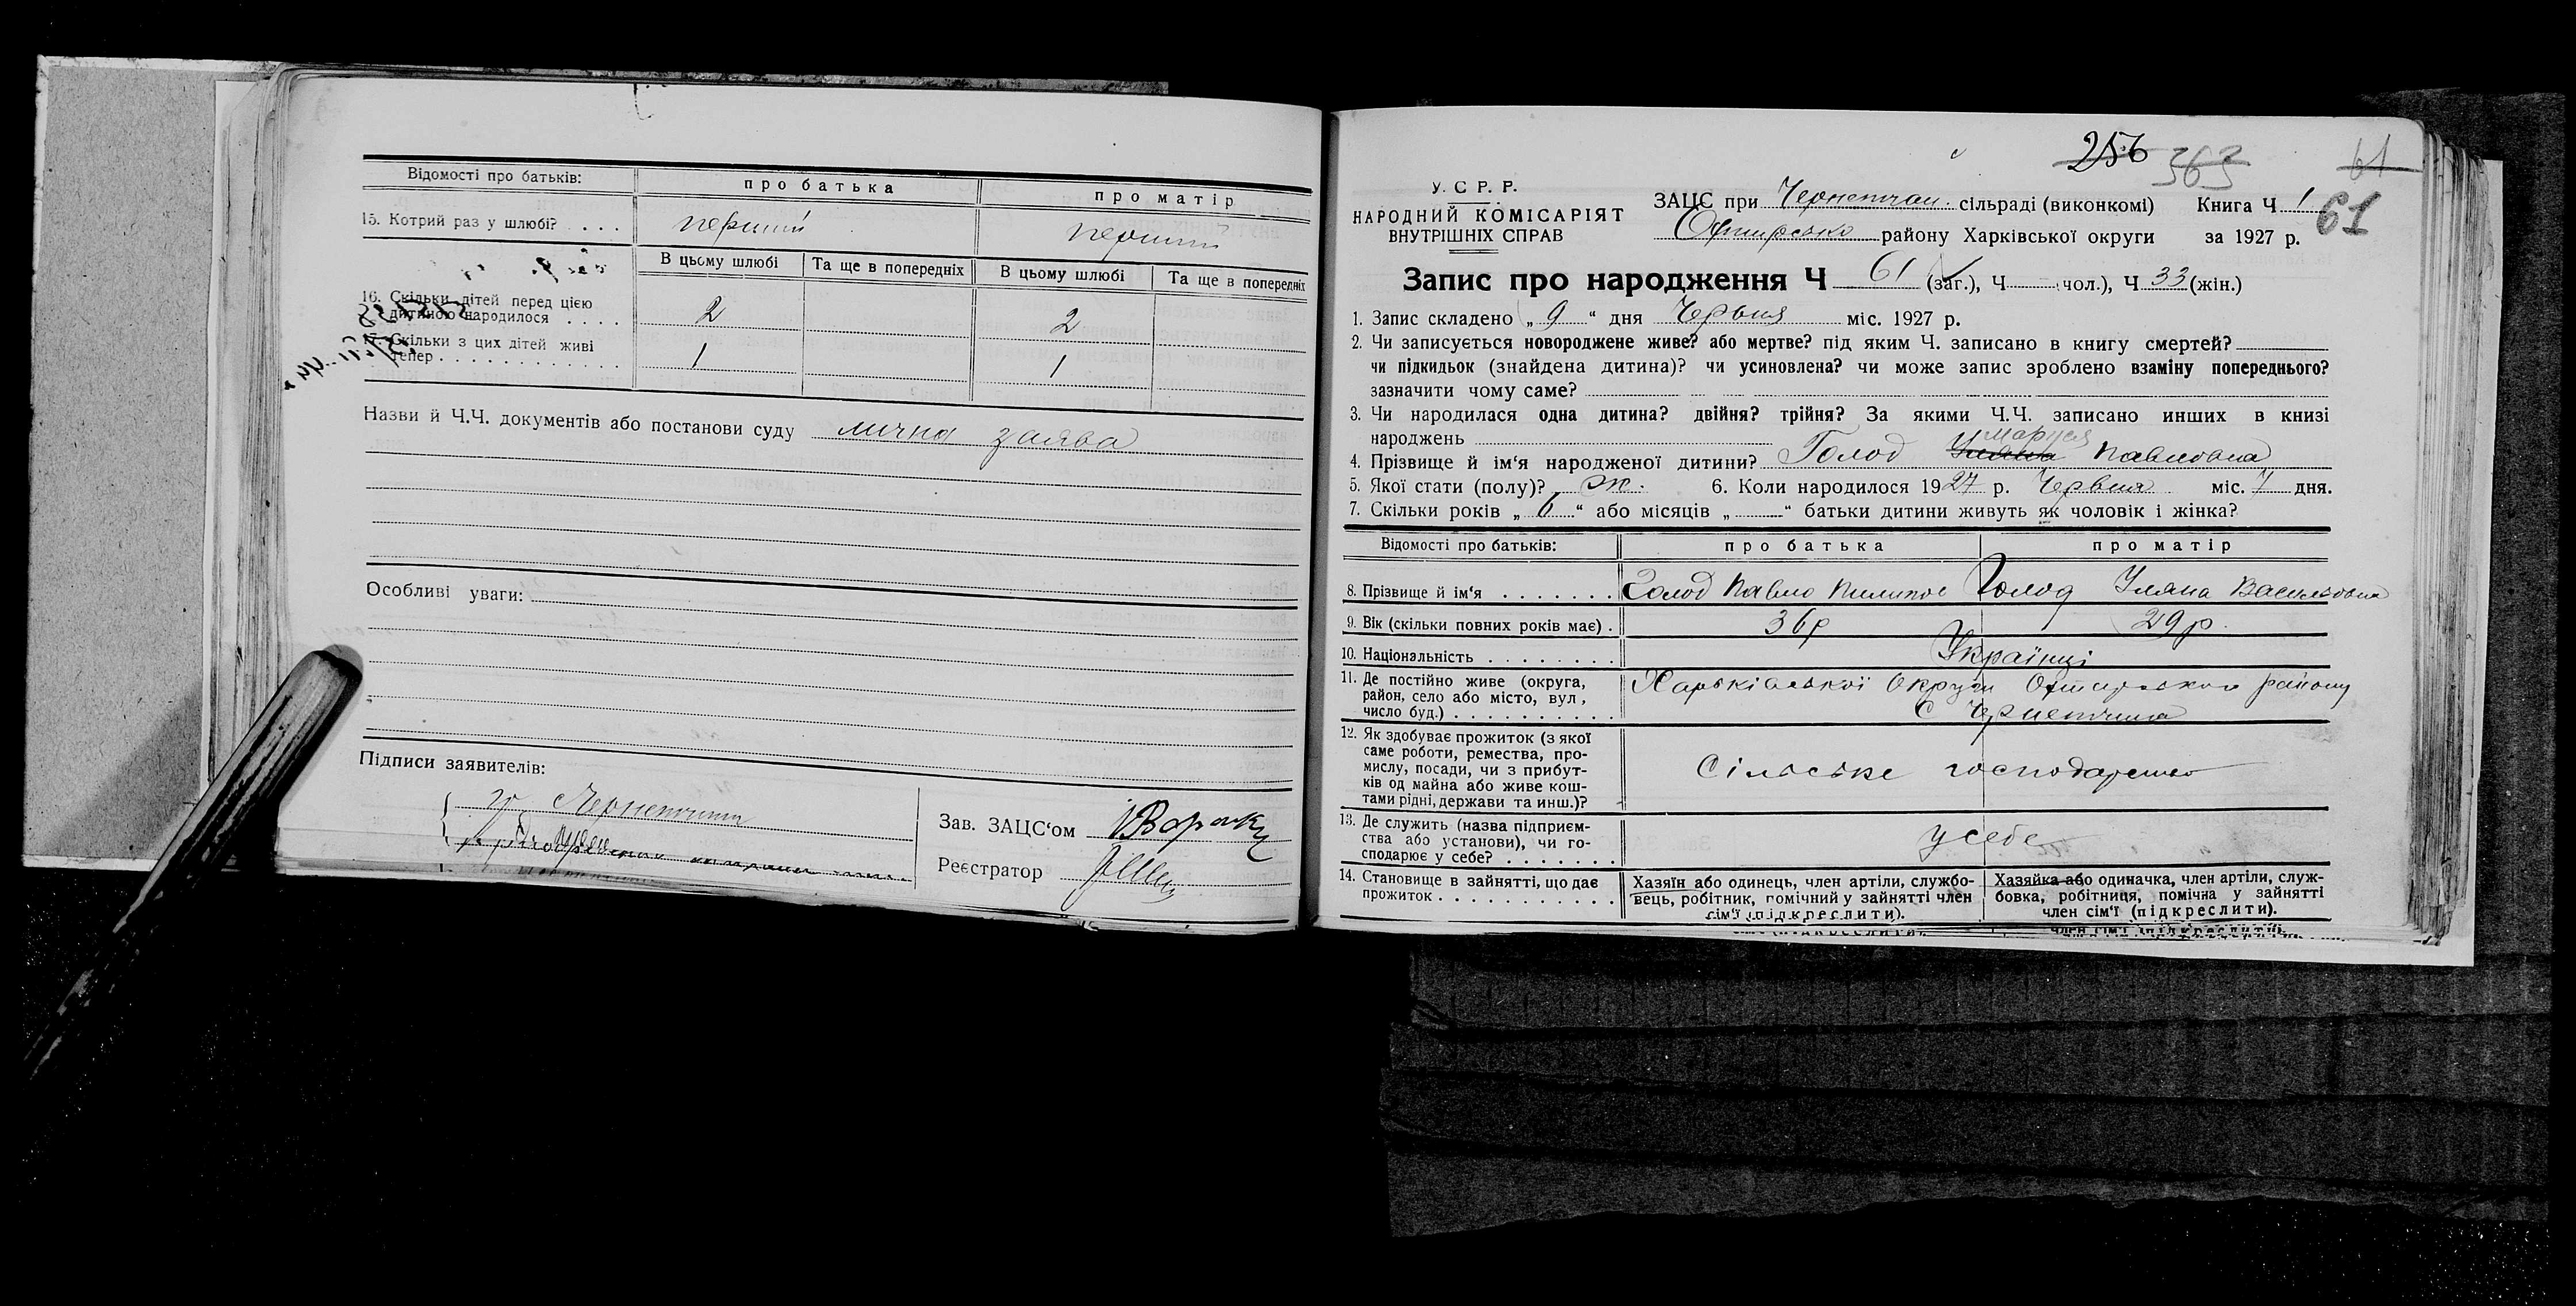 Відомості про батьків: про батька про матір
15. Котрий раз у шлюбі? . . . . перший перший
В цьому шлюбі Та ще в попередніх В цьому шлюбі Та ще в попередніх
16. Скільки дітей перед цією
дитиною народилося . . . . 2 2
17. Скільки з цих дітей живі
тепер . . . . . . . . . . . 1 1
Назви й Ч.Ч. документів або постанови суду лична заява
Особливі уваги:
Підписи заявителів:
Зав. ЗАЦС‘ом
Реєстратор
256 363 61
61
У. С Р. Р.
НАРОДНИЙ КОМІСАРІЯТ
ВНУТРІШНІХ СПРАВ
ЗАЦС при Чернетчан. сільраді (виконкомі) Книга Ч 1
Охтирсько району Харківської округи за 1927 р.
Запис про народження Ч 61 (заг.), Ч чол.), Ч 33 (жін.)
1. Запис складено „ 9 “ дня Червня міс. 1927 р.
2. Чи записується новороджене живе? або мертве? під яким Ч. записано в книгу смертей?
чи підкидьок (знайдена дитина)? чи усиновлена? чи може запис зроблено взаміну попереднього?
зазначити чому саме?
3. Чи народилася одна дитина? двійня? трійня? За якими Ч.Ч. записано инших в книзі
народжень
4. Прізвище й ім‘я народженої дитини? Голод Уляна Мария Павловна
5. Якої стати (полу)? ж. 6. Коли народилося 1927 р. Червня міс. 7 дня.
7. Скільки років „ 6 “ або місяців „ “ батьки дитини живуть як чоловік і жінка?
Відомості про батьків: про батька про матір
8. Прізвище й ім‘я . . . . . . . Голод Павло Пилипов Голод Уляна Васильовна
9. Вік (скільки повних років має) . 36р 29р.
10. Національність . . . . . . . . Українці
11. Де постійно живе (округа,
район, село або місто, вул,
число буд.) . . . . . . . . . .
Харьківської Округи Охтирського району
С Чернетчина
12. Як здобуває прожиток (з якої
саме роботи, ремества, про-
мислу, посади, чи з прибут-
ків од майна або живе кош-
тами рідні, держави та инш.)?
Сільське господарство
13. Де служить (назва підприєм-
ства або установи), чи го-
сподарює у себе? . . . . . . .
у себе
14. Становище в зайнятті, що дає
прожиток . . . . . . . . . . . .
Хазяїн або одинець, член артіли, службо-
вець, робітник, помічний у зайнятті член
сім‘ї (підкреслити).
Хазяйка або одиначка, член артіли, служ-
бовка, робітниця, помічна у зайнятті
член сім‘ї (підкреслити).